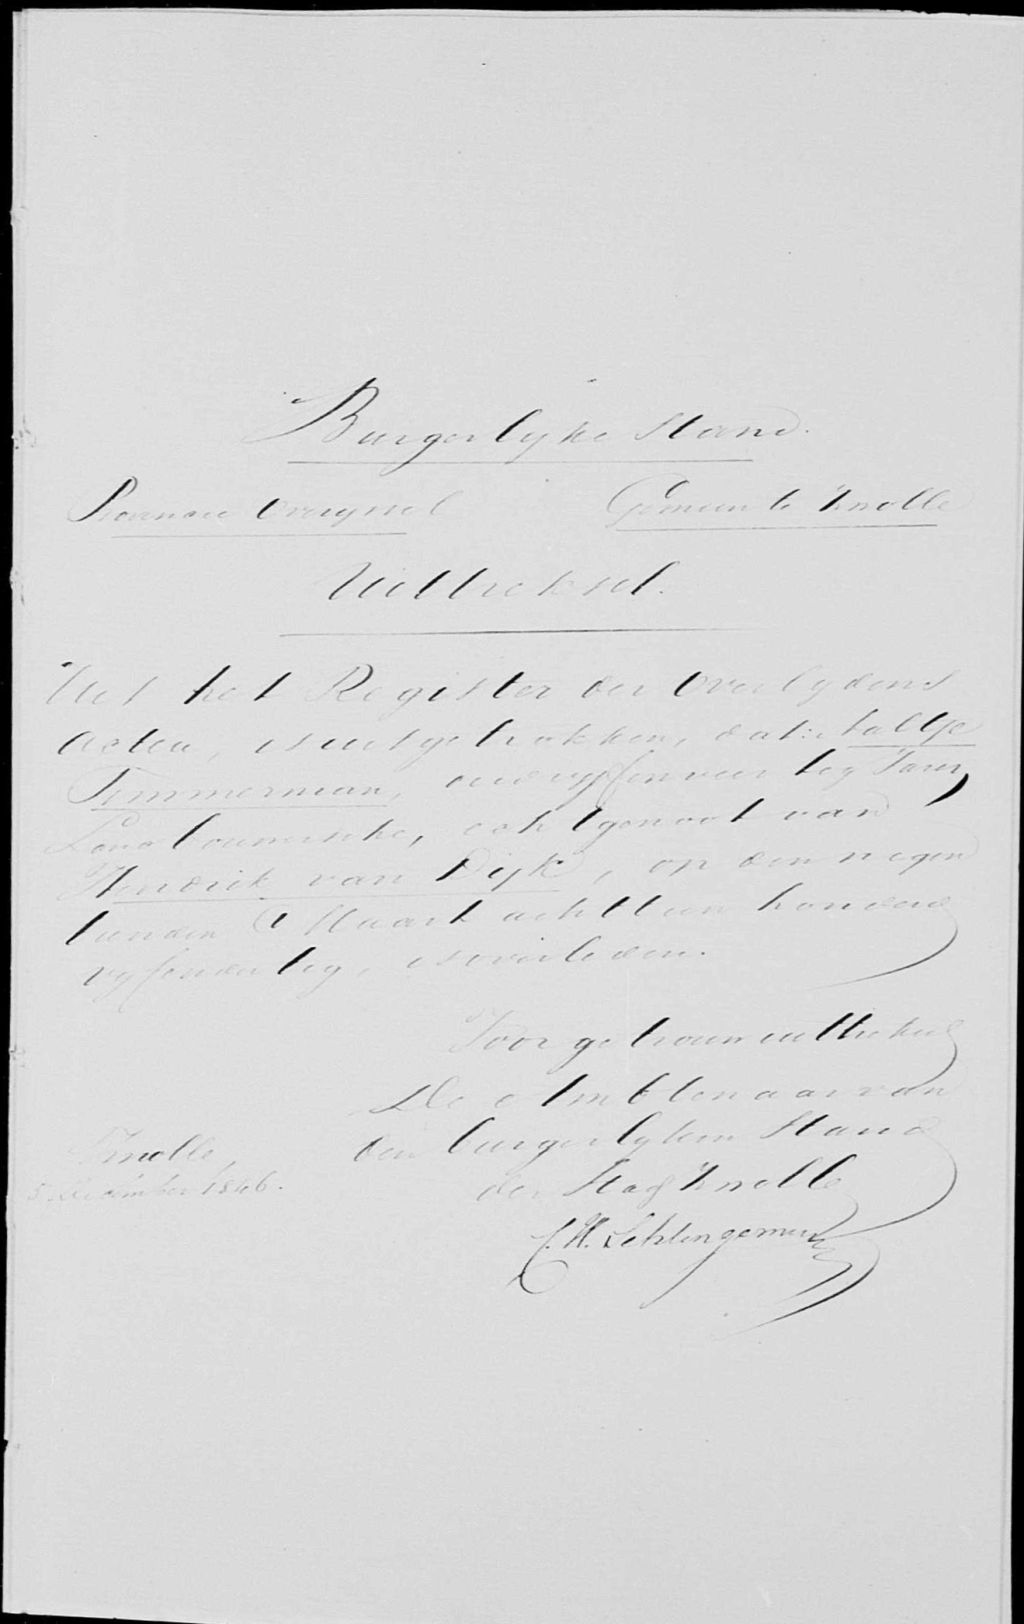 Burgerlyke Stand.
Provincie Overyssel Gemeente Znolle
Uittreksel.
Uit het Register der Overlydens
Acten, is uitgetrokken, dat: Aaltje
Timmerman, oud vyfenveertig Jaren,
Landbouwersche, echtgenoot van
Hendrik van Dijk, op den negen
tienden Maart achttien honderd
vyfendertig, is overleden.
Voor getrouw uittreksel
De Ambtenaar van
den burgerlyken Stand
der Stad Znolle
Znolle,
5 December 1846.